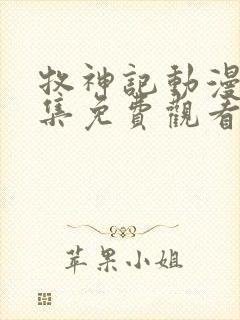 牧神記動漫
集免費觀看
苹果小姐